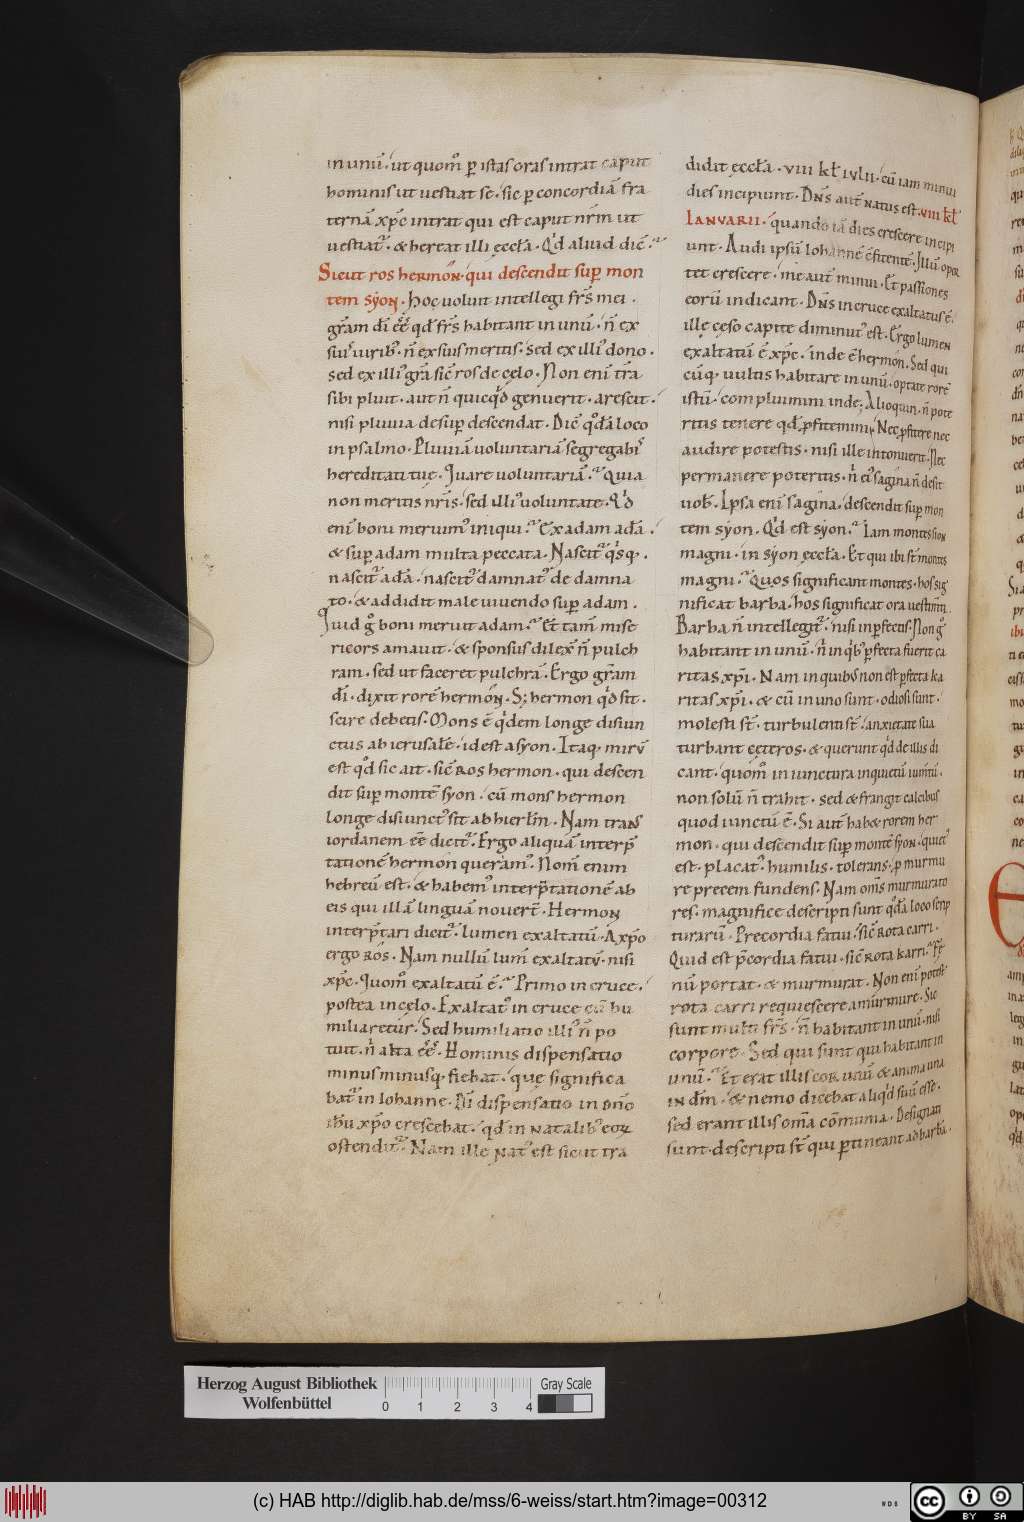 in unū. ut quom̄ ꝑ istas oras intrat caput
hominis ut uestiat se. sic ꝑ concordiā fra
ternā xp̄c intrat qui est caput nr̄m ut
uestiat᷑. & hereat illi ęccɫa. Qd̓ aliud dic̄.
Sicut ros hermon. qui descendit suꝑ mon
tem syon. Hoc uoluit intellegi fr̄s mei.
grām dī ēē qđ fr̄s habitant in unū. n̄ ex
suis uirib᷒. n̄ ex suis meritis. sed ex illi᷒ dono.
sed ex illi᷒ grā sic̄ ros de cęlo. Non eni tr̄a
sibi pluit. aut n̄ quicqd̓ genuerit. arescit.
nisi pluuia desuꝑ descendat. Dic̄ qđā loco
in psalmo. Pluuiā uoluntariā segregabis
hereditati tuę. Quare uoluntariā. Quia
non meritis nr̄is. sed illi᷒ uoluntate. Qd̓
eni boni meruim᷒ iniqui. Ex adam adā.
& suꝑ adam multa peccata. Nascit᷑ qs̓q.
nascit᷑ adā. nascit᷑ damnat᷒ de damna
to. & addidit male uiuendo suꝑ adam.
Quid g̊ boni meruit adam. Et tam̄ mise
ricors amauit. & sponsus dilex̄ n̄ pulch
ram. sed ut faceret pulchrā. Ergo grām
dī. dixit rorē hermon. S; hermon qd̓ sit.
scire debetis. Mons ē qd̓em longe disiun
ctus ab ierusalē. id est a syon. Itaq. mirū
est qđ sic ait. sic̄ ros hermon. qui descen
dit suꝑ montē syon. cū mons hermon
longe disiunct᷒ sit ab hierlm̄. Nam trans
iordanem ēē dicit᷑. Ergo aliquā interp̄
tationē hermon queram᷒. Nom̄ enim
hebreū est. & habem᷒ interp̄tationē ab
eis qui illā linguā nouert̄. Hermon
interp̄tari dicit᷑. lumen exaltatū. A xp̄o
ergo ros. Nam nullū lum̄ exaltatū. nisi
xp̄c. Quom̄ exaltatū ē. Primo in cruce.
postea in cęlo. Exaltat᷒ in cruce cū hu
miliaretur. Sed humiliatio illi᷒ n̄ po
tuit. n̓ alta ēē. Hominis dispensatio
minus minusq. fiebat. quę significa
bat᷑ in Iohanne. Dī dispensatio in dn̄o
ih̄u xp̄o crescebat. qđ in natalib᷒ eoꝝ
ostendit᷑. Nam ille nat᷒ est sicut tra
didit ęccɫa. viii kɫ iulii. cū iam minui
dies incipiunt. Dn̄s aut̄ natus est. viii kɫ
Ianuarii. quando iā dies crescere incipi
unt. Audi ipsū Iohannē c̄fitentē. Illū opor
tet crescere. me aut̄ minui. Et passiones
eorū indicant. Dn̄s in cruce exaltatus ē.
ille cęso capite diminut᷒ est. Ergo lumen
exaltatū ē xp̄c. inde ē hermon. Sed qui
cūq. uultis habitare in unū. optate rorē
istū. compluimini inde; Alioquin. n̄ pote
ritis tenere qđ ꝓfitemini. Nec ꝓfitere nec
audire potestis. nisi ille intonuerit. Nec
permanere poteritis. n̓ ei᷒ sagina n̄ desit
uob. Ipsa eni sagina. descendit suꝑ mon
tem syon. Qd̓ est syon. Iam montis sion
magni. in syon ęccɫa. Et qui ibi st̄ montes
magni. Quos significant montes. hos sig
nificat barba. hos significat ora uestim̄ti.
Barba n̄ intellegit᷑. nisi in ꝑfectis. Non g̊
habitant in unū. n̓ in qb᷒ ꝑfecta fuerit ca
ritas xp̄i. Nam in quib᷒ non est ꝑfecta ka
ritas xp̄i. & cū in uno sunt. odiosi sunt.
molesti st̄. turbulenti st̄. anxietate sua
turbant cęteros. & querunt qd̓ de illis di
cant. quom̄ in iunctura inquietū iumtū.
non solū n̄ trahit. sed & frangit calcibus
quod iunctū ē. Si aut̄ hab& rorem her
mon. qui descendit suꝑ montē syon. quiet᷒
est. placat᷒. humilis. tolerans. ꝓ murmu
re precem fundens. Nam om̄s murmurato
res. magnifice descripti sunt qđā loco scrip
turarū. Precordia fatui. sic̄ rota carri.
Quid est p̄cordia fatui. sic̄ rota karri. Fę
nū portat. & murmurat. Non eni potest
rota carri requiescere a murmure. Sic
sunt multi fr̄s. n̄ habitant in unū. nisi
corpore. Sed qui sunt qui habitant in
unū. Et erat illis cor unū & anima una
in dm̄. & nemo dicebat aliqd̓ suū esse.
sed erant illis om̄a cōmunia. Designati
sunt. descripti st̄ qui ꝑtineant ad barbā.
Herzog August Bibliothek
Wolfenbüttel
0 1 2 3 4
Gray Scale
(c) HAB http://diglib.hab.de/mss/6-weiss/start.htm?image=00312
cc BY SA